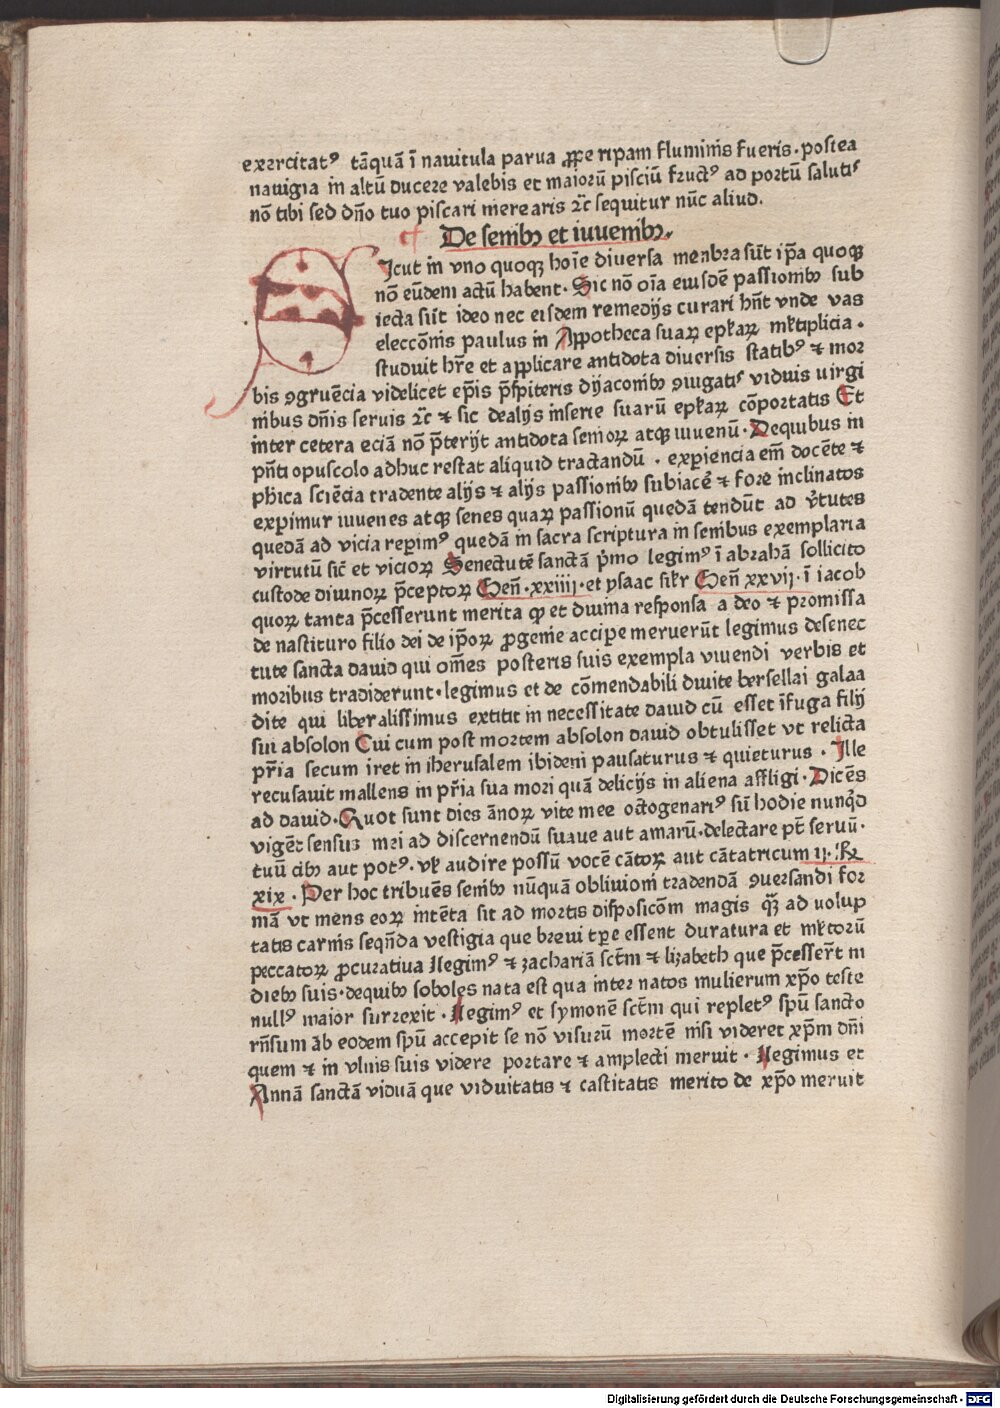 exercitatꝰ tāquā ī nauitula parua ꝓpe ripam fluminis fueris · postea
nauigia in altū ducere valebis et maiorū pisciū fructꝰ ad portū salutis
nō tibi sed dn̄o tuo piscari merearis ⁊c̄ sequitur nūc aliud.
De senibꝫ et iuuenibꝫ.
SIcut in vno quoqꝫ hoīe diuersa menbra sūt ip̄a quoqꝫ
nō eūdem actū habent · Sic nō oīa eiusdē passionibꝫ sub
iecta sūt ideo nec eisdem remedijs curari hn̄t vnde vas
eleccōnis paulus in Appotheca suaꝝ epl̄aꝝ ml̄tiplicia ·
studuit hr̄e et applicare antidota diuersis statibꝰ ⁊ mor
bis ꝯgruēcia videlicet ep̄is p̄sƀiteris dyaconibꝫ ꝯiugatis viduis uirgi
nibus dn̄is seruis ⁊c̄ ⁊ sic dealijs inserie suarū epl̄aꝝ cōportatis Et
inter cetera eciā nō p̄terijt antidota senioꝝ atqꝫ iuuenū · Dequibus in
pn̄ti opuscolo adhuc restat aliquid tractandū · exꝑiencia em̄ docēte ⁊
ph̄ica sciēcia tradente alijs ⁊ alijs passionibꝫ subiacē ⁊ fore inclinatos
exꝑimur iuuenes atqꝫ senes quaꝝ passionū quedā tendūt ad v̄tutes
quedā ad vicia reꝑimꝰ quedā in sacra scriptura in senibus exemplaria
virtutū sic̄ et vicioꝝ Senectutē sanctā p̄mo legimꝰ ī abrahā sollicito
custode diuinoꝝ p̄ceptoꝝ Gen̄ · xxiiij · et ysaac sil̄r Gen̄ xxvij · ī iacob
quoꝝ tanta p̄cesserunt merita ꝙ et diuina responsa a deo ⁊ promissa
de nascituro filio dei de ip̄oꝝ ꝓgenie accipe meruerūt legimus desenec
tute sancta dauid qui om̄es posteris suis exempla viuendi verbis et
moribus tradiderunt · legimus et de cōmendabili diuite bersellai galaa
dite qui liberalissimus extitit in necessitate dauid cū esset īfuga filij
sui absolon Cui cum post mortem absolon dauid obtulisset vt relicta
pr̄ia secum iret in iherusalem ibidem pausaturus ⁊ quieturus · Ille
recusauit mallens in pr̄ia sua mori quā delicijs in aliena affligi · Dicēs
ad dauid · Quot sunt dies ānoꝝ vite mee octogenariꝰ sū hodie nunq̇d
vigēt sensus mei ad discernendū suaue aut amarū · delectare pt̄ seruū ·
tuū cibꝫ aut potꝰ · vl̄ audire possū vocē cātoꝝ aut cātatricum ij · R̄
xix · Per hoc tribuēs senibꝫ nūquā obliuioni tradendā ꝯuersandi for
mā vt mens eoꝝ intēta sit ad mortis disposicōm magis q̄ꝫ ad uolup
tatis carnis seqn̄da vestigia que breui tꝑe essent duratura et ml̄torū
peccatoꝝ ꝓcuratiua legimꝰ ⁊ zachariā sct̄m ⁊ lizabeth que p̄cesser̄t in
diebꝫ suis · dequibꝫ soboles nata est qua inter natos mulierum xp̄o teste
nullꝰ maior surrexit · Legimꝰ et symonē sct̄m qui repletꝰ spū sancto
rn̄sum ab eodem spū accepit se nō visurū mortē nisi videret xp̄m dn̄i
quem ⁊ in vlnis suis videre portare ⁊ amplecti meruit · Legimus et
Annā sanctā viduā que viduitatis ⁊ castitatis merito de xp̄o meruit
Digitalisierung gefördert durch die Deutsche Forschungsgemeinschaft - DFG